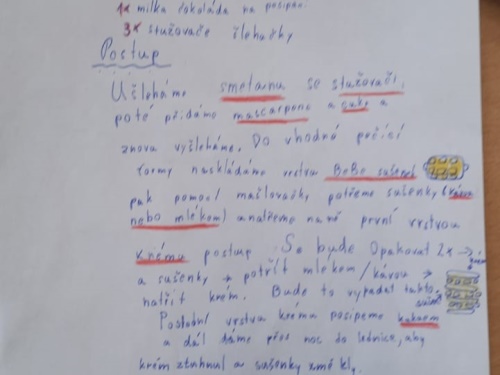 1x milka čokoláda na posipání
3x stužovače šlehačky
Postup
Ušleháme smetanu se stužovači,
poté přidáme mascarpone a cukr a
znova vyšleháme. Do vhodné pečící
formy naskládáme vrstvu BeBe sušenek
pak pomocí mašlovačky potřeme sušenky (kávou
nebo mlékem) a nalřeme na ně první vrstvou
krému postup Se bude Opakovat 2x →
a sušenky → potřít mlékem/kávou →
natřít krém. Bude to vypadat takto.
Poslední vrstvu krému posipeme kakaem
a dál dáme přes noc do lednice, aby
krém ztuhnul a sušenky změkly.
krém
sušenk